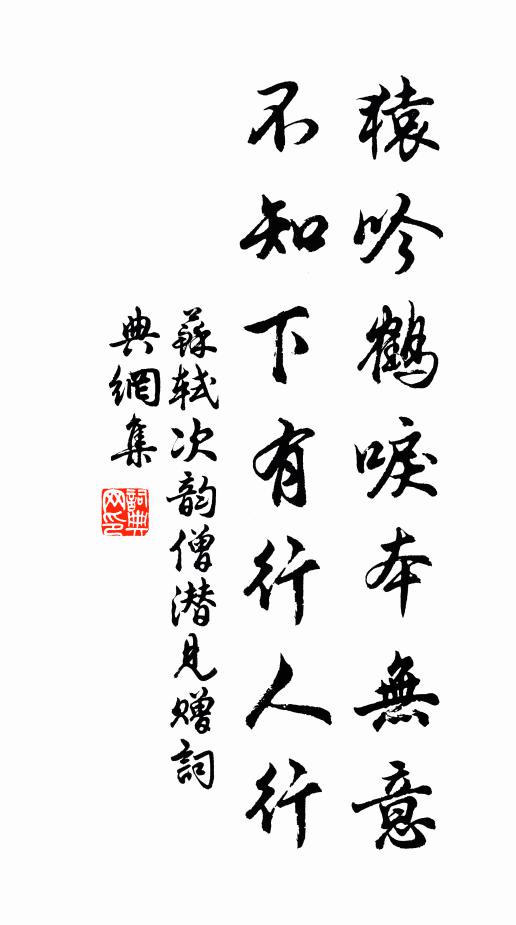 猿吟鶴唳本無意
不知下有行人行
蘇軾次韵僧潜見贈詞
典網集
詞典
网印